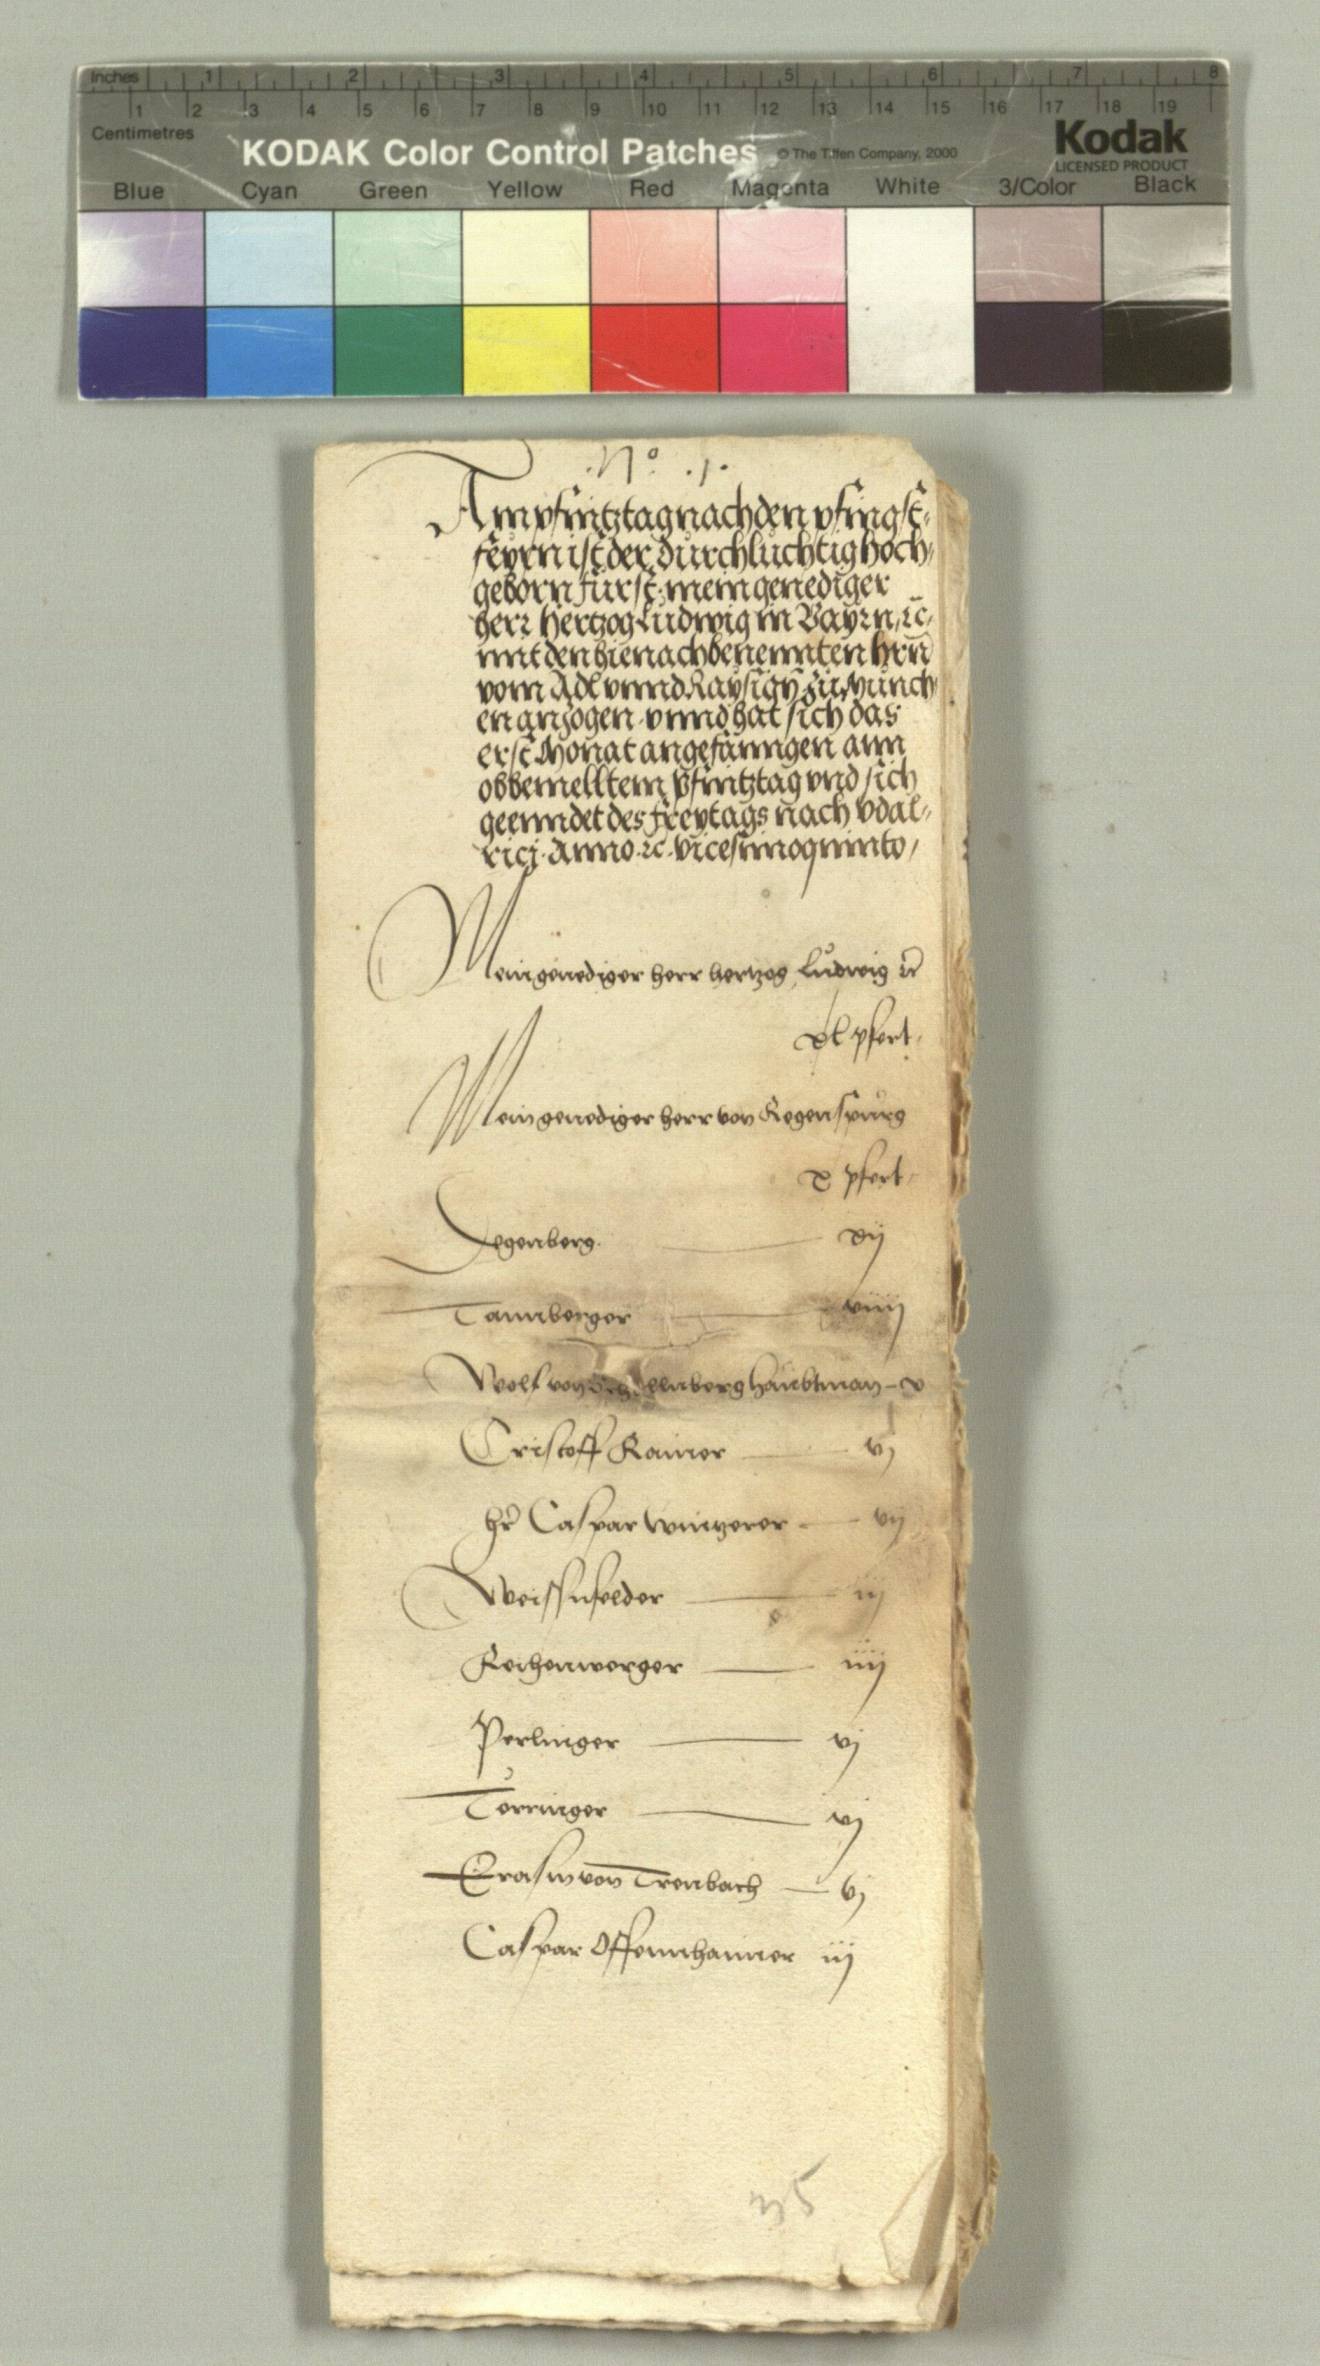 Inches 1 2 3 4 5 6 7 8
1 2 3 4 5 6 7 8 9 10 11 12 13 14 15 16 17 18 19
Centimetres
KODAK Color Control Patches © The Tiffen Company, 2000
Kodak
LICENSED PRODUCT
Blue Cyan Green Yellow Red Magenta White 3/Color Black
.Nº .1.
Am pfintztag nach den pfingst-
feyrn ist der durchluchtig hoch-
geborn fürst mein genediger
herr hertzog Ludwig in Bayrn, ꝛc.
mit den hienachbenennten hrn
vom Adl vnnd Raysign zu Münch-
en anzogen vnnd hat sich das
erst Monat angefanngen am
obbemelltem Pfintztag vnd sich
geenndet des freytags nach vdal-
rici Anno ꝛc. vicesimoquinto,
Mein genediger herr hertzog Ludwig ꝛc
xl pfert.
Mein genediger herr von Regenspurg
x pfert.
Degenberg. xij
Tannberger viiij
Wolf von haubtman - x
Cristoff Rainer vj
hr Caspar Wintzerer vij
Weissnfelder iij
Reihenwerger iiij
Perlinger vj
Törringer vj
Erasm von Trenbach vj
Caspar Offennhaimer iij
35